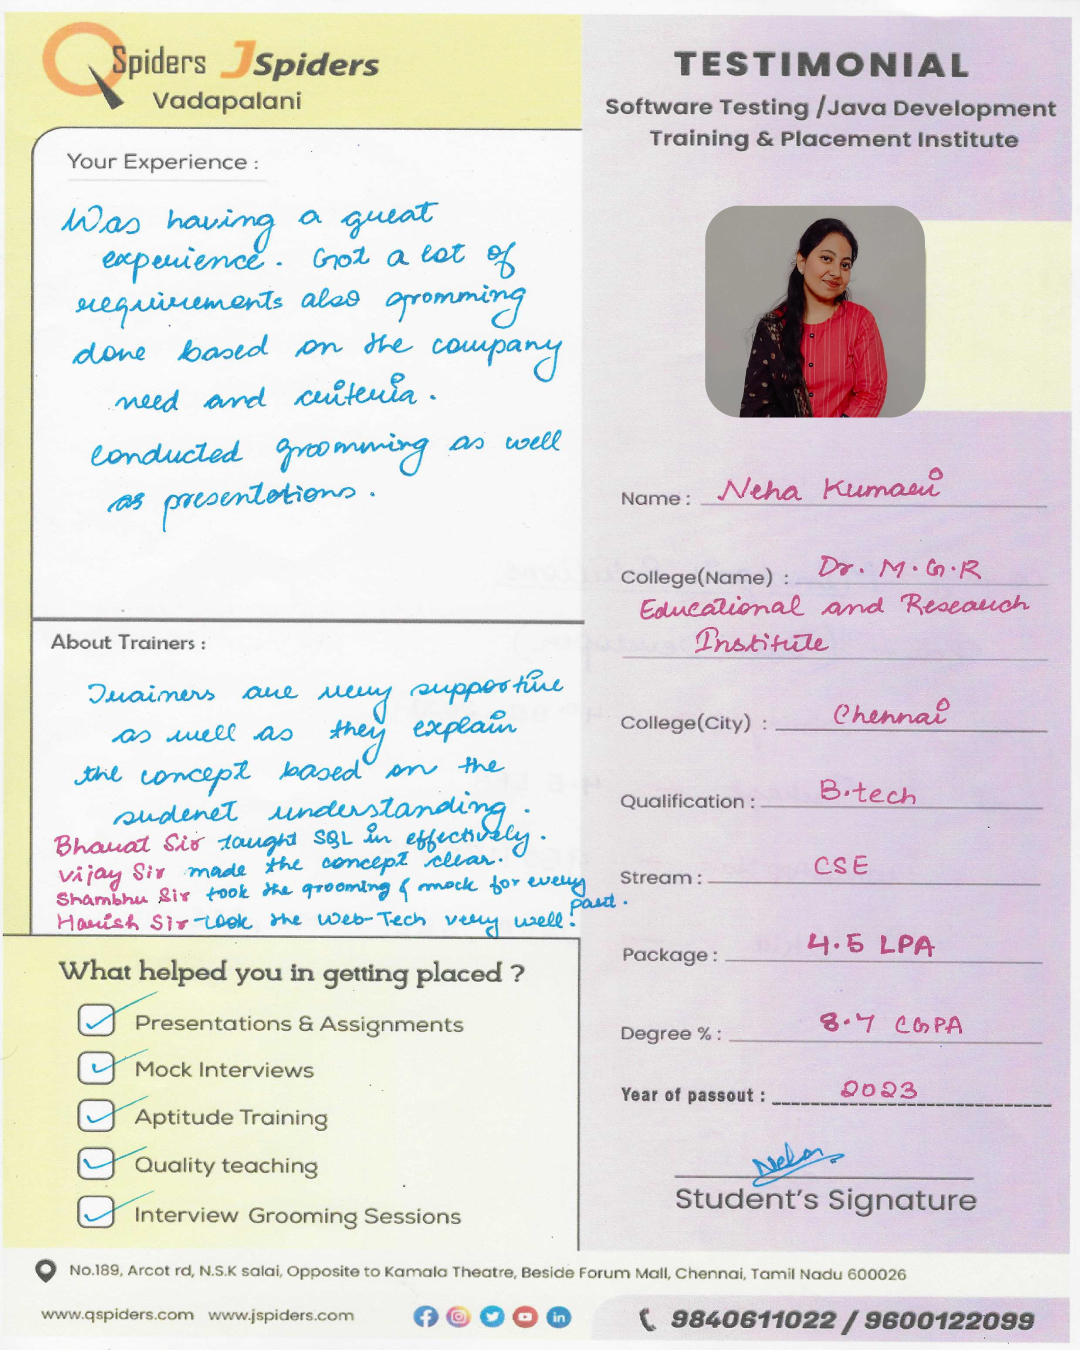 QSpiders JSpiders
Vadapalani
TESTIMONIAL
Software Testing /Java Development
Training & Placement Institute
Your Experience :
Was having a great
experience. Got a lot of
requirements also gromming
done based on the company
need and criteria.
conducted groomming as well
as presentations.
About Trainers :
Trainers are very supportive
as well as they explain
the concept based on the
sudenet understanding.
Bharat Sir taught SQL in effectively.
Vijay Sir made the concept clear.
Shambhu Sir took the grooming & mock for every
part.
Harish Sir took the Web-Tech very well.
What helped you in getting placed ?
Presentations & Assignments
Mock Interviews
Aptitude Training
Quality teaching
Interview Grooming Sessions
Name : Neha Kumari
College(Name) : Dr. M.G.R
Educational and Research
Institute
College(City) : Chennai
Qualification : B.tech
Stream : CSE
Package : 4.5 LPA
Degree % : 8.7 CGPA
Year of passout : 2023
Neha
Student's Signature
No.189, Arcot rd, N.S.K salai, Opposite to Kamala Theatre, Beside Forum Mall, Chennai, Tamil Nadu 600026
www.qspiders.com www.jspiders.com
9840611022 / 9600122099